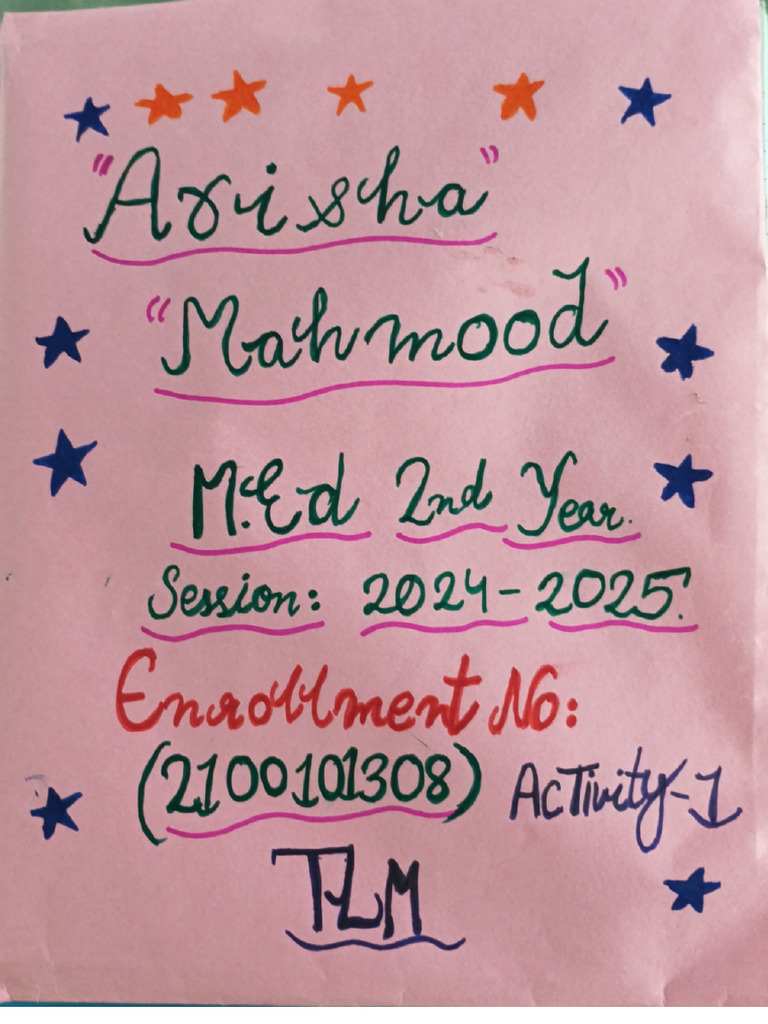 "Arisha"
"Mahmood"
M.Ed 2nd Year.
Session: 2024-2025.
Enrollment No:
(2100101308) Activity-1
TLM